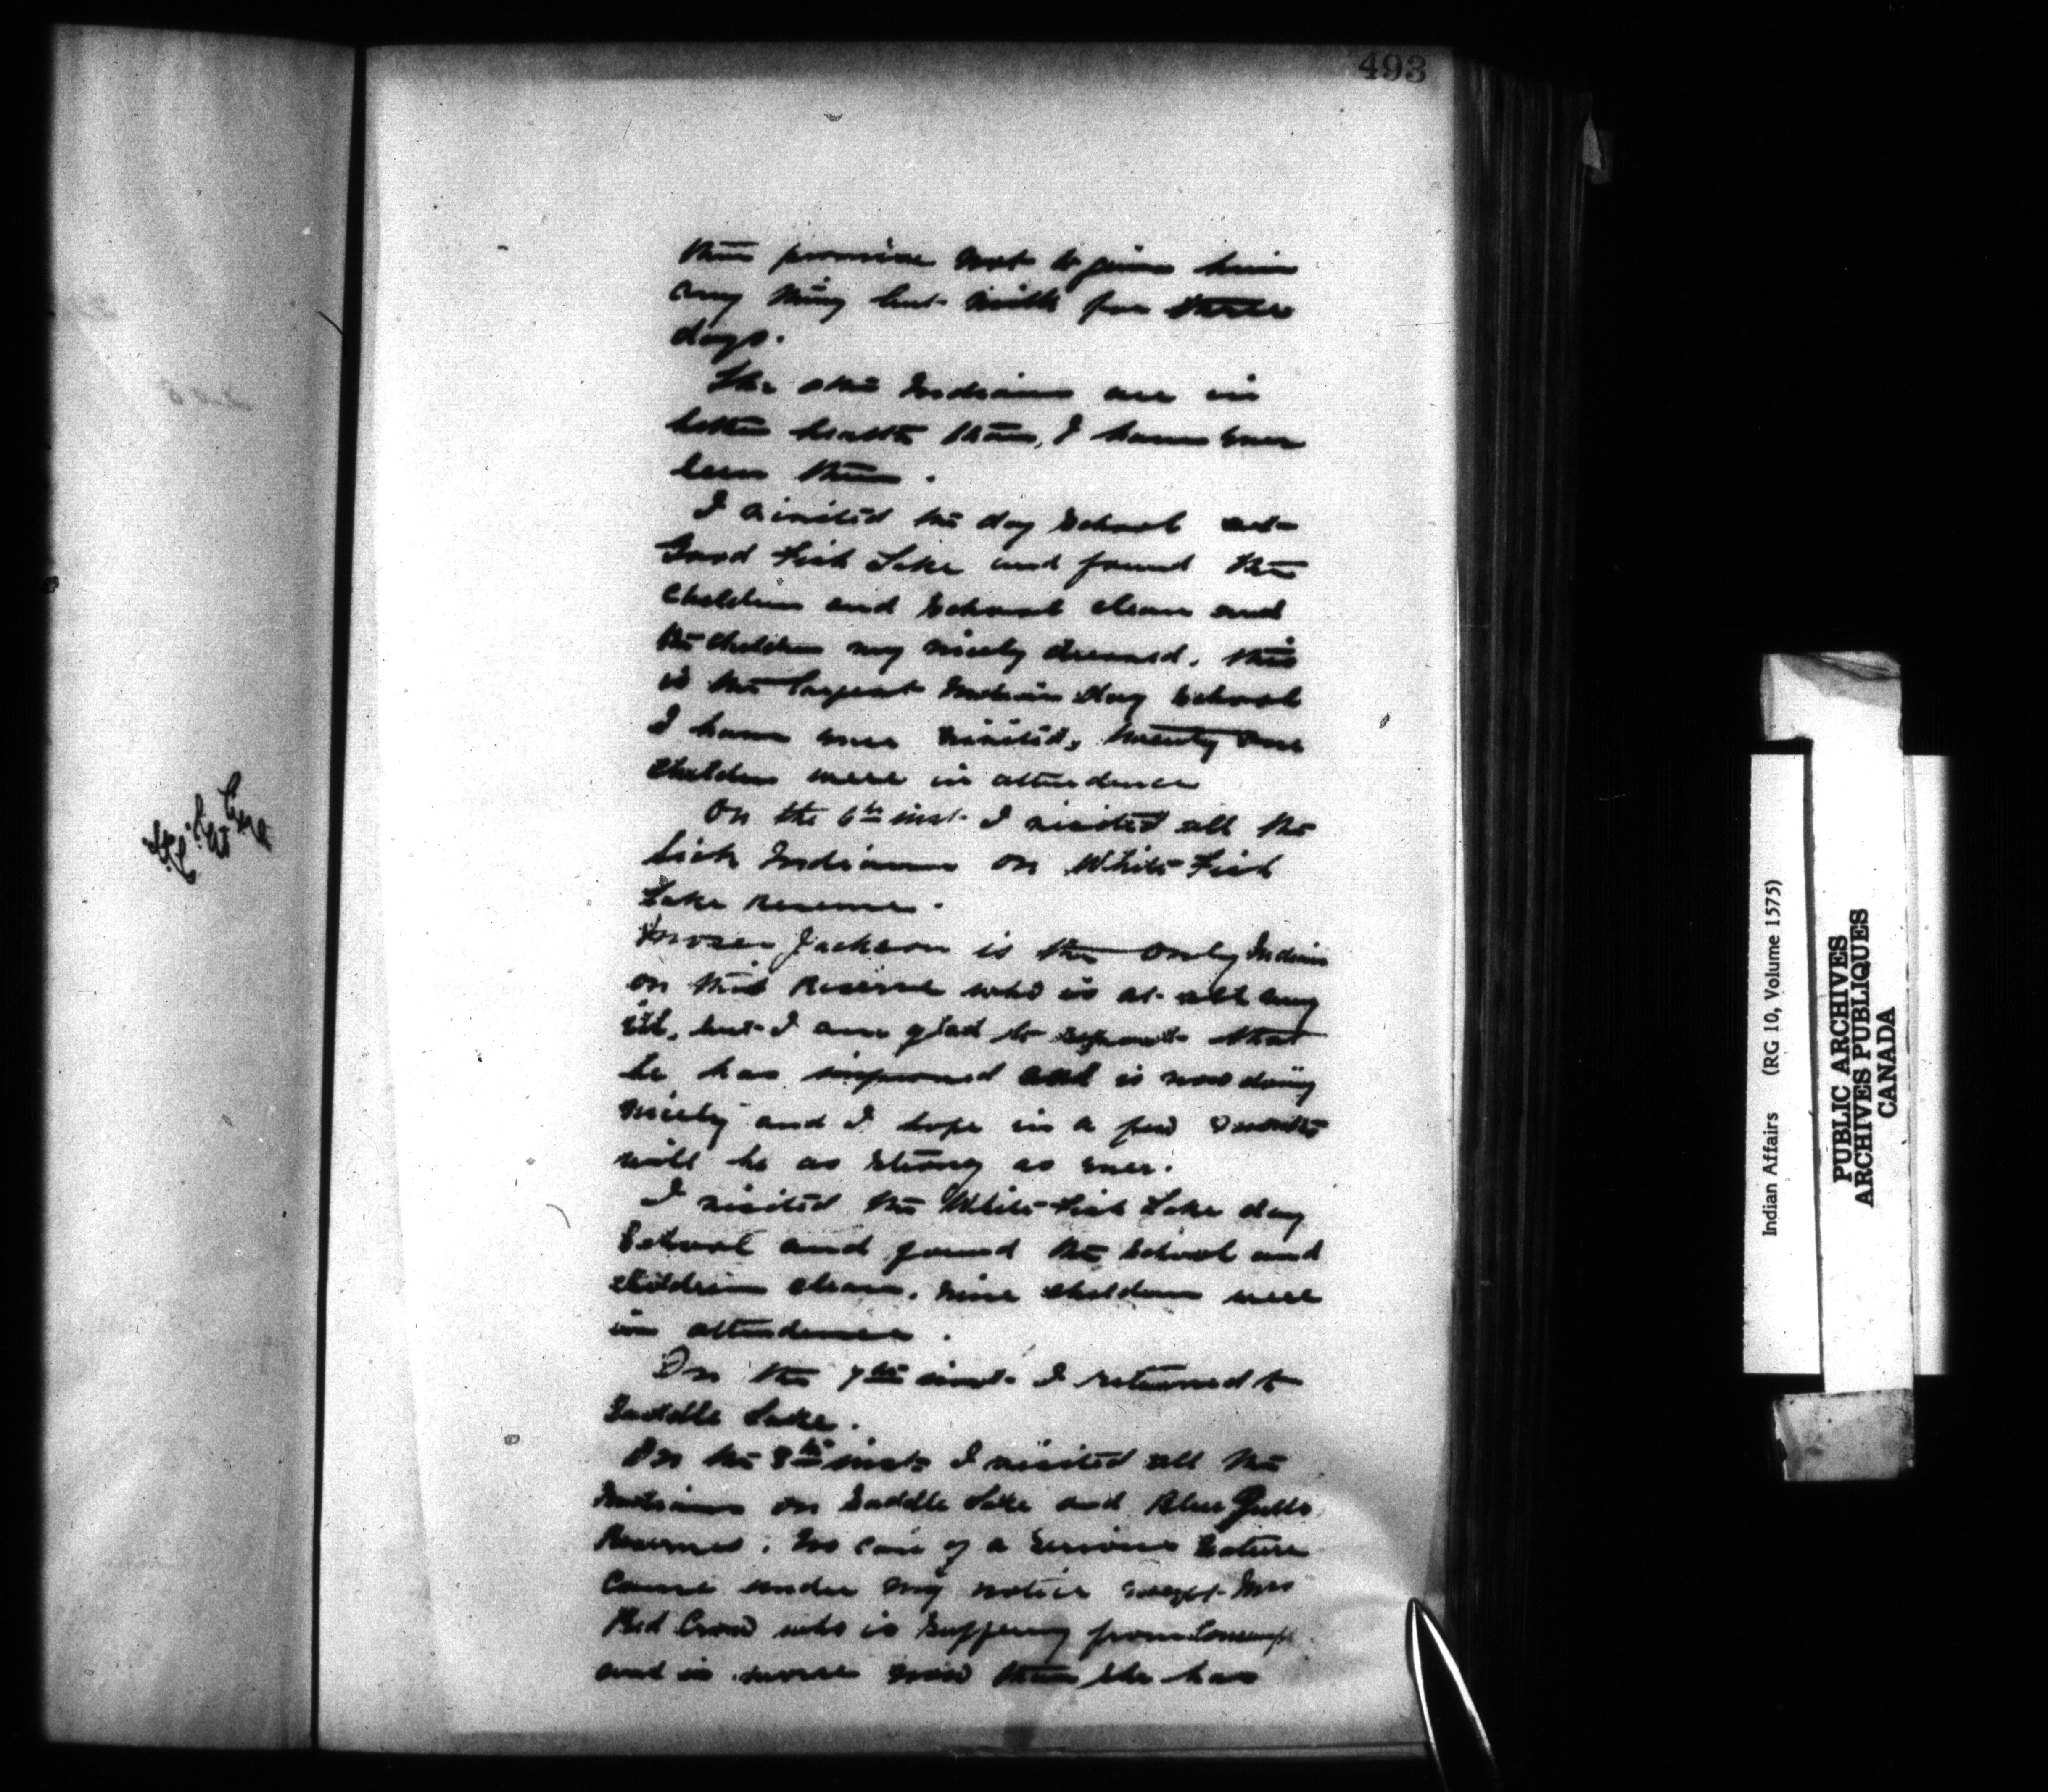 493
them promise not to give him
any thing but milk for three
days.
The other Indians are in
better health than, I have ever
seen them.
I visited the day School at
Good Fish Lake and found the
Children and School clean and
the children very nicely dressed, this
is the largest Indian day School
I have ever visited, twenty one
children were in attendance
On the 6th inst. I visited all the
Sick Indians on White Fish
Lake Reserve.
Moses Jackson is the only Indian
on this Reserve who is at all very
ill, but I am glad to report that
he has improved and is now doing
nicely and I hope in a few months
will be as strong as ever.
I visited the White Fish Lake day
School and found the School and
children clean, nine children were
in attendance.
On the 7th inst. I returned to
Saddle Lake.
On the 8th inst. I visited all the
Indians on Saddle Lake and Blue Quills
Reserves, no case of a serious nature
came under my notice except Mrs
Red Crow who is suffering from
and is worse now than she has
Indian Affairs (RG 10, Volume 1575)
PUBLIC ARCHIVES
ARCHIVES PUBLIQUES
CANADA